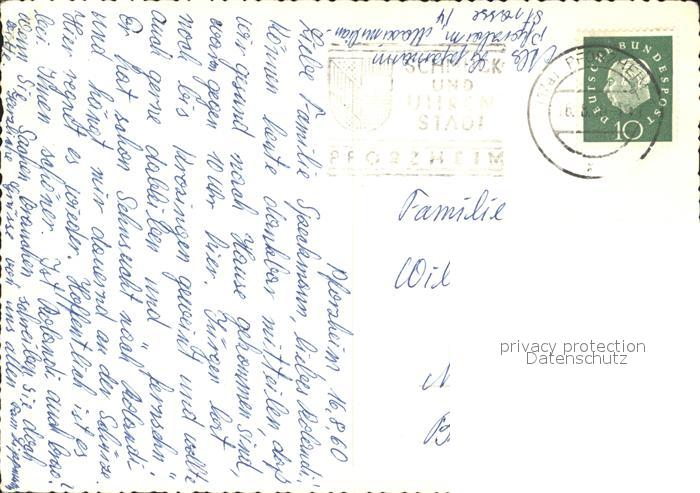 Pforzheim 16.8.60
Liebe Familie Sparkmann, lieber Rolandi!
Können heute dankbar mitteilen, daß
wir gesund nach Hause gekommen sind,
waren gegen 10 Uhr hier. Jürgen hat
noch bis Krozingen geweint und wollte
auch gerne dableiben und "fernsehn"
Er hat schon Sehnsucht nach Rolandi
und hängt mir dauernd an der Schürze.
Hier regnet es wieder. Hoffentlich ist es
bei Ihnen schöner. Ist Rolandi auch brav?
Wenn Sie Sachen brauchen schreiben Sie doch
Pforzheim Maximilian-
Strasse 14
SCHMUCK
UND
UHREN
STADT
PFORZHEIM
DEUTSCHE BUNDESPOST
10
Familie
Wil
privacy protection
Datenschutz